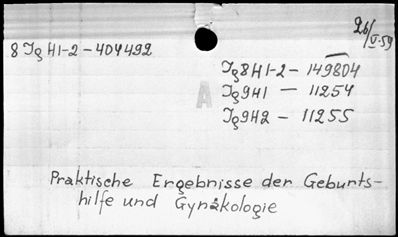 26/V-59
8 Jg H1-2 - 404492
Jg8H1-2 - 149804
Jg9H1 - 11254
Jg9H2 - 11255
A
Praktische Ergebnisse der Geburts-
hilfe und Gynäkologie